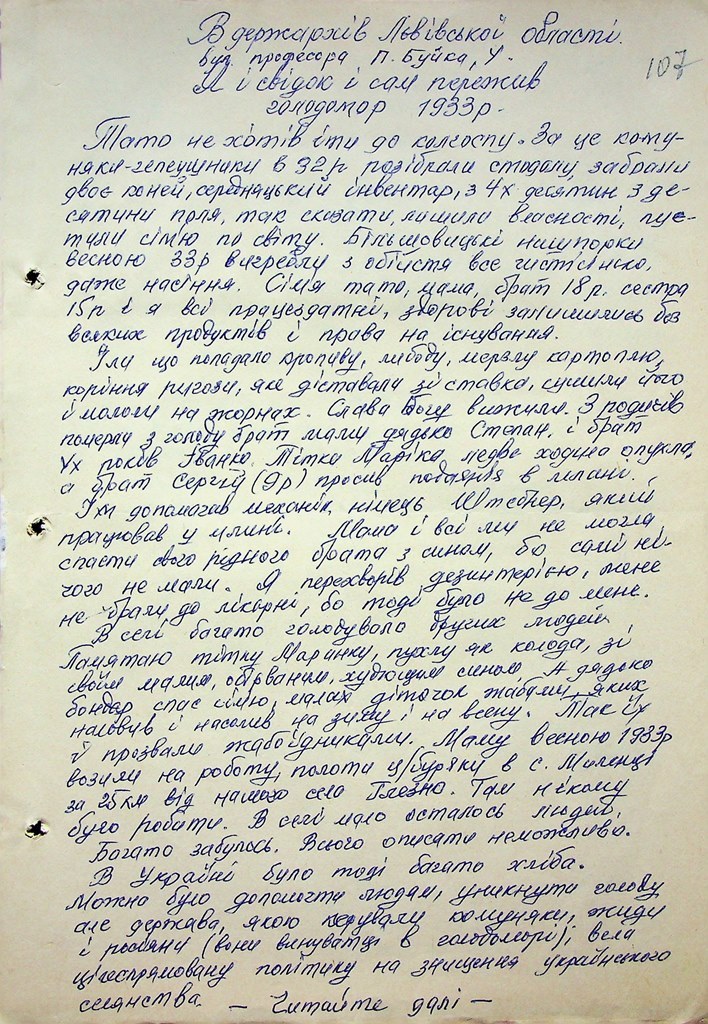 В держархів Львівської області.
вул. професора П. Буйка, 4.
107
Я і свідок і сам пережив
голодомор 1933р.
Тато не хотів іти до колгоспу. За це кому-
няки-гепеушники в 32 р розібрали стодолу, забрали
двоє коней, середняцький інвентар, з 4х десятин 3 де-
сятини поля, так сказати, лишили власності, пус-
тили сімю по світу. Більшовицькі нишпорки
весною 33р вигребли з обійстя все чистісінько,
даже насіння. Сімя тато, мама, брат 18 р. сестра
15р і я всі працездатні, здорові залишились без
всяких продуктів і права на існування.
Їли що попадало кропиву, лободу, мерзлу картоплю,
коріння рогози, яке діставали зі ставка, сушили його
і мололи на жорнах. Слава Богу вижили. З родичів
померли з голоду брат мами дядько Степан. і брат
4х років Іванко. Тітка Маріка ледве ходила опухла,
а брат Сергій (9р) просив подаяння в млині.
Їм допомагав механік, німець Штебнер, який
працював у млині. Мама і всі ми не могли
спасти свого рідного брата з сином, бо самі ні-
чого не мали. Я перехворів дезинтерією, мене
не брали до лікарні, бо тоді було не до мене.
В селі багато голодувало других людей.
Памятаю тітку Маринку, пухлу як колода, зі
своїм малим, обірваним, худющим сином. А дядько
бондар спас сімю, малих діточок жабами, яких
наловив і насолив на зиму і на весну. Так їх
і прозвали жабоїдниками. Маму весною 1933р
возили на роботу, полоти ц/буряки в с.
за 25км від нашого села Глезно. Там нікому
було робити. В селі мало осталось людей.
Багато забулось. Всього описати неможливо.
В Україні було тоді багато хліба.
Можна було допомогти людям, уникнути голоду
але держава, якою керували комуняки, жиди
і росіяни (вони винуватці в голодоморі), вела
цілеспрямовану політику на знищення українського
селянства. — Читайте далі —